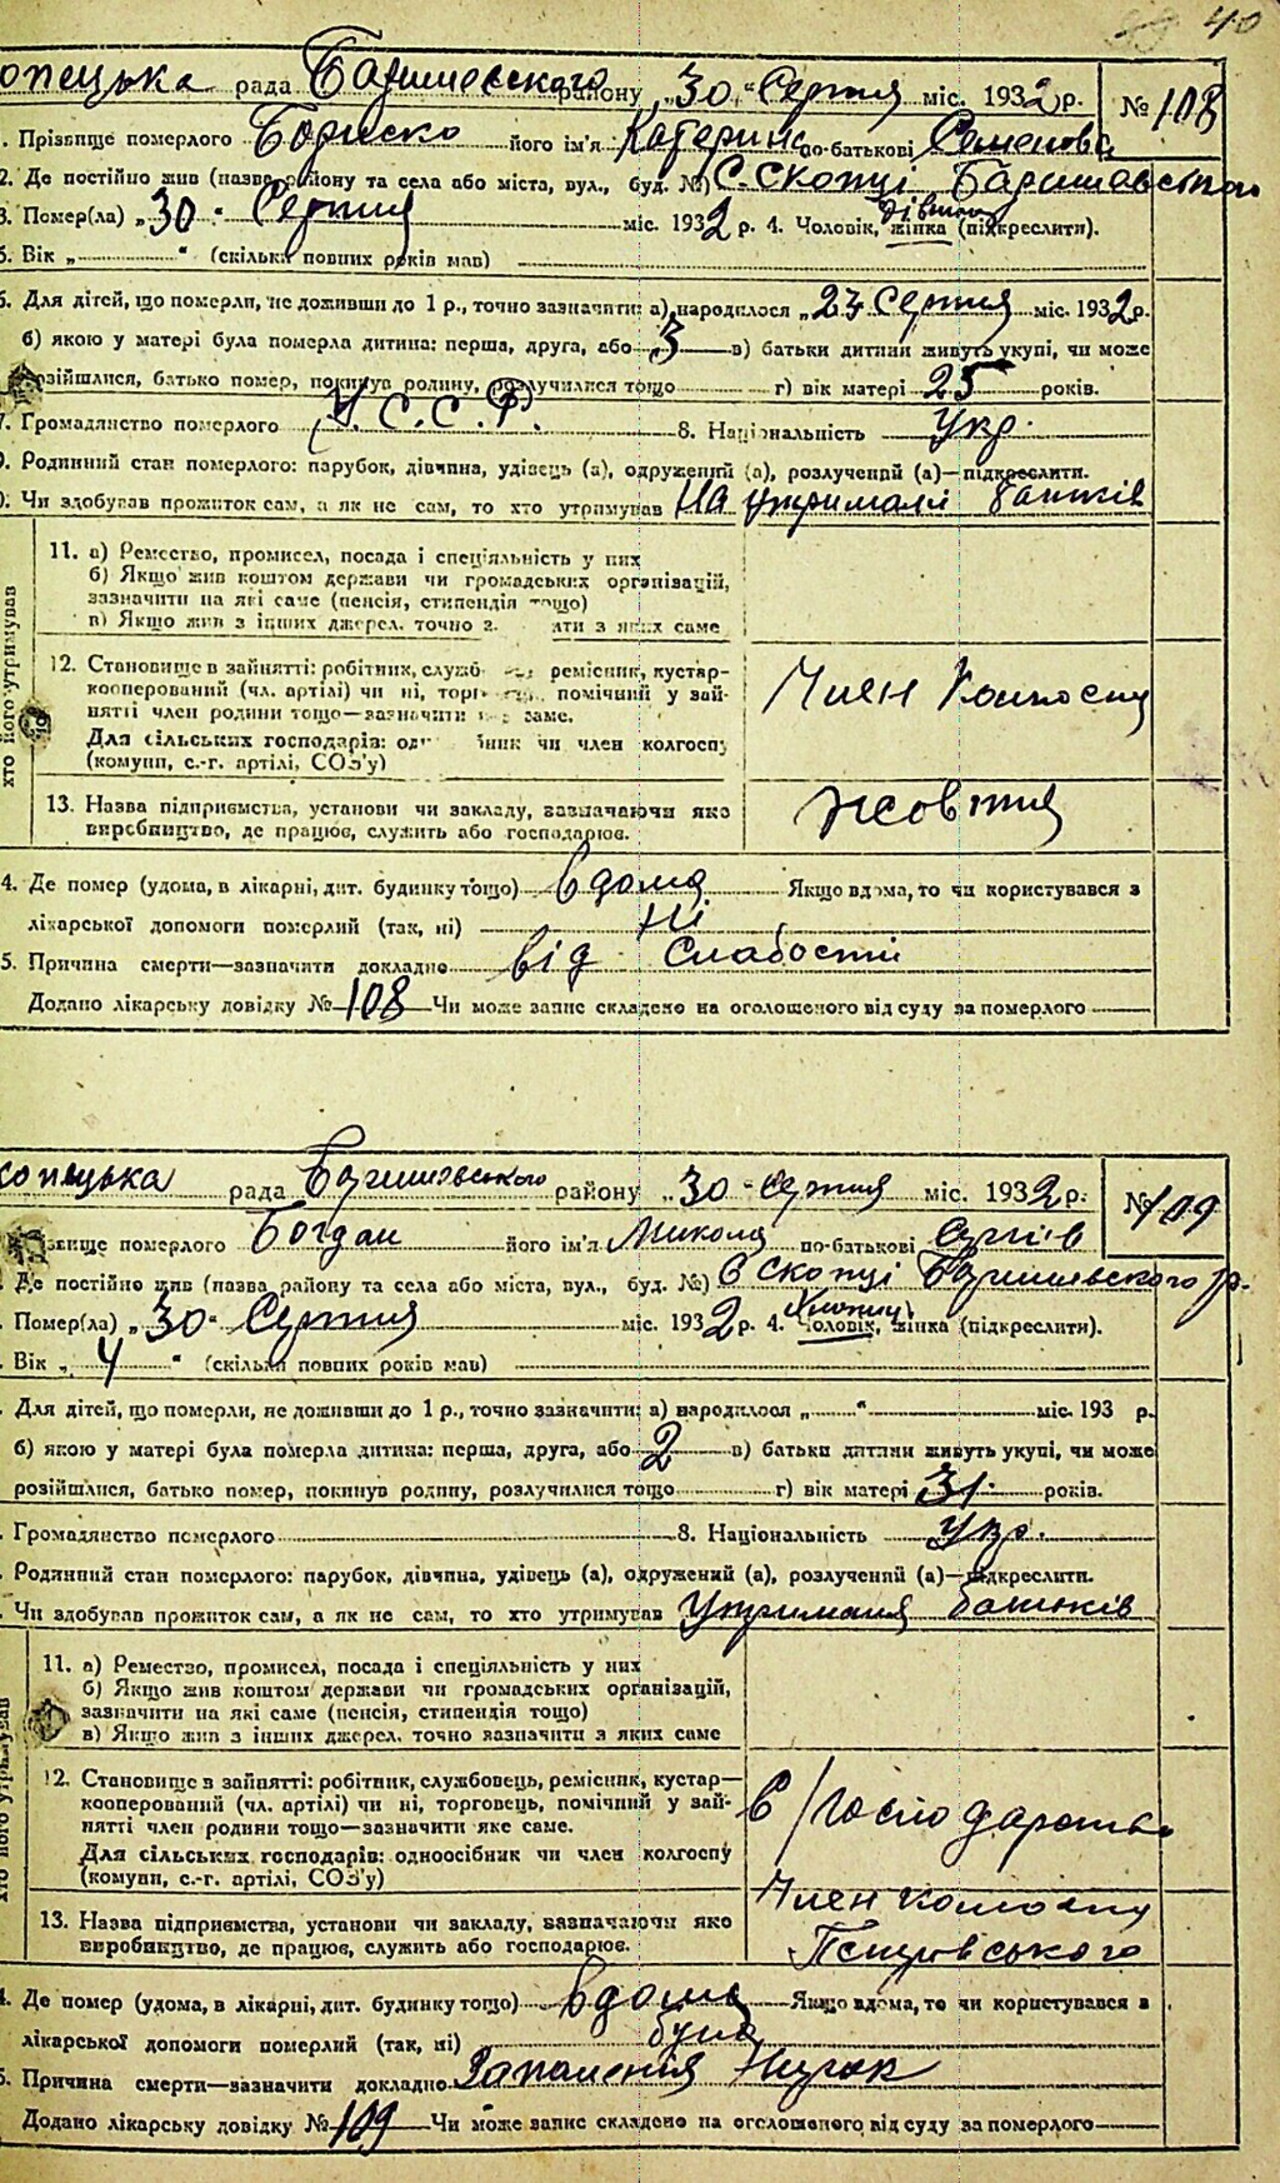 40
опецька рада Баришевского району „30“ Серпня міс. 1932 р. № 108
. Прізвище померлого Бориско його ім'я Катерина по-батькові Семенова
2. Де постійно жив (назва району та села або міста, вул., буд. №) С. Скопці Баришевского
3. Помер(ла) „30“ Серпня міс. 1932 р. 4. Чоловік, жінка (підкреслити). дівчина
5. Вік „ “ (скільки повних років мав)
6. Для дітей, що померли, не доживши до 1 р., точно зазначити: а) народилося „23 Серпня міс. 1932 р.
б) якою у матері була померла дитина: перша, друга, або 3 в) батьки дитини живуть укупі, чи може
розійшлися, батько помер, покинув родину, розлучилися тощо г) вік матері 25 років.
7. Громадянство померлого У.С.С.Р. 8. Національність Укр.
9. Родинний стан померлого: парубок, дівчина, удівець (а), одружений (а), розлучений (а)—підкреслити.
0. Чи здобував прожиток сам, а як не сам, то хто утримував На утримані батьків
хто його утримував
11. а) Ремество, промисел, посада і спеціяльність у них
б) Якщо жив коштом держави чи громадських організацій,
зазначити на які саме (пенсія, стипендія тощо)
в) Якщо жив з інших джерел. точно з яких саме
12. Становище в зайнятті: робітник, служб ремісник, кустар-
кооперований (чл. артілі) чи ні, торг помічний у зай-
нятті член родини тощо—зазначити яке саме.
Для сільських господарів: од чи член колгоспу
(комуни, с.-г. артілі, СОЗ'у)
Член Колхоспу
13. Назва підприємства, установи чи закладу, зазначаючи яко
виробництво, де працює, служить або господарює.
Жовтня
4. Де помер (удома, в лікарні, дит. будинку тощо) вдома Якщо вдома, то чи користувався з
лікарської допомоги померлий (так, ні) Ні
5. Причина смерти—зазначити докладно від Слабости
Додано лікарську довідку № 108 Чи може запис складено на оголошеного від суду за померлого
копецька рада Баришевського району „30“ Серпня міс. 1932 р. № 109
звище померлого Богдан його ім'я Микола по-батькові Сергіїв
. Де постійно жив (назва району та села або міста, вул., буд. №) С Скопці Баришевского р.
. Помер(ла) „30“ Серпня міс. 1932 р. 4. Чоловік, жінка (підкреслити). Хлопчик
. Вік „ 4 “ (скільки повних років мав)
. Для дітей, що померли, не доживши до 1 р., точно зазначити: а) народилося „ “ міс. 193 р.
б) якою у матері була померла дитина: перша, друга, або 2 в) батьки дитини живуть укупі, чи може
розійшлися, батько помер, покинув родину, розлучилися тощо г) вік матері 31 років.
. Громадянство померлого 8. Національність Укр.
. Родинний стан померлого: парубок, дівчина, удівець (а), одружений (а), розлучений (а)—підкреслити.
. Чи здобував прожиток сам, а як не сам, то хто утримував Утриманя батьків
хто його утримував
11. а) Ремество, промисел, посада і спеціяльність у них
б) Якщо жив коштом держави чи громадських організацій,
зазначити на які саме (пенсія, стипендія тощо)
в) Якщо жив з інших джерел. точно зазначити з яких саме
12. Становище в зайнятті: робітник, службовець, ремісник, кустар—
кооперований (чл. артілі) чи ні, торговець, помічний у зай-
нятті член родини тощо—зазначити яке саме.
Для сільських господарів: одноосібник чи член колгоспу
(комуни, с.-г. артілі, СОЗ'у)
С/Господарство
Член колхоспу
13. Назва підприємства, установи чи закладу, зазначаючи яко
виробництво, де працює, служить або господарює.
Петровського
4. Де помер (удома, в лікарні, дит. будинку тощо) вдома Якщо вдома, то чи користувався з
лікарської допомоги померлий (так, ні) була
5. Причина смерти—зазначити докладно Запаления Нирок
Додано лікарську довідку № 109 Чи може запис складено на оголошеного від суду за померлого